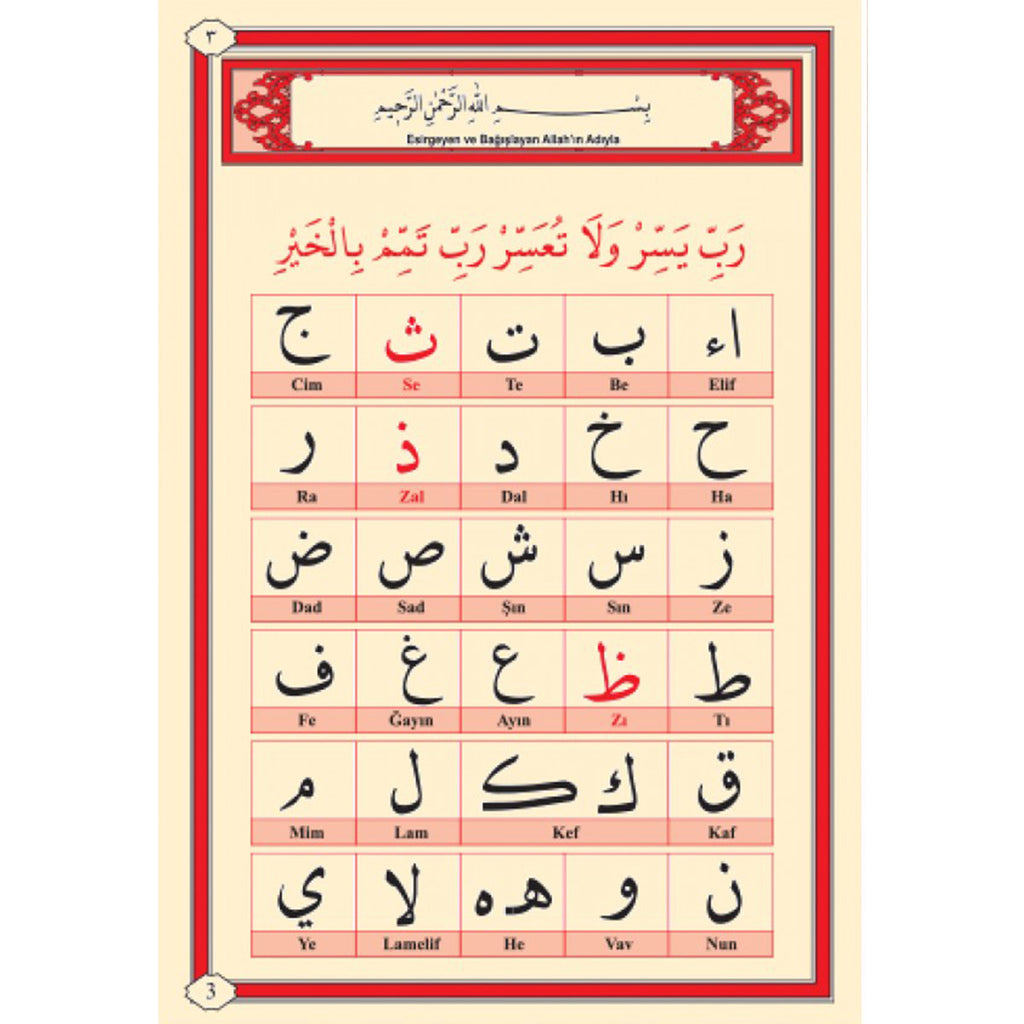 ٣
بِسْــــــــمِ اللّٰهِ الرَّحْمٰنِ الرَّحٖيمِ
Esirgeyen ve Bağışlayan Allah'ın Adıyla
رَبِّ يَسِّرْ وَلَا تُعَسِّرْ رَبِّ تَمِّمْ بِالْخَيْرِ
ا ء ب ت ث ج
Elif Be Te Se Cim
ح خ د ذ ر
Ha Hı Dal Zal Ra
ز س ش ص ض
Ze Sın Şın Sad Dad
ط ظ ع غ ف
Tı Zı Ayın Ğayın Fe
ق ك ک ل م
Kaf Kef Lam Mim
ن و هـ ه لا ي
Nun Vav He Lamelif Ye
3